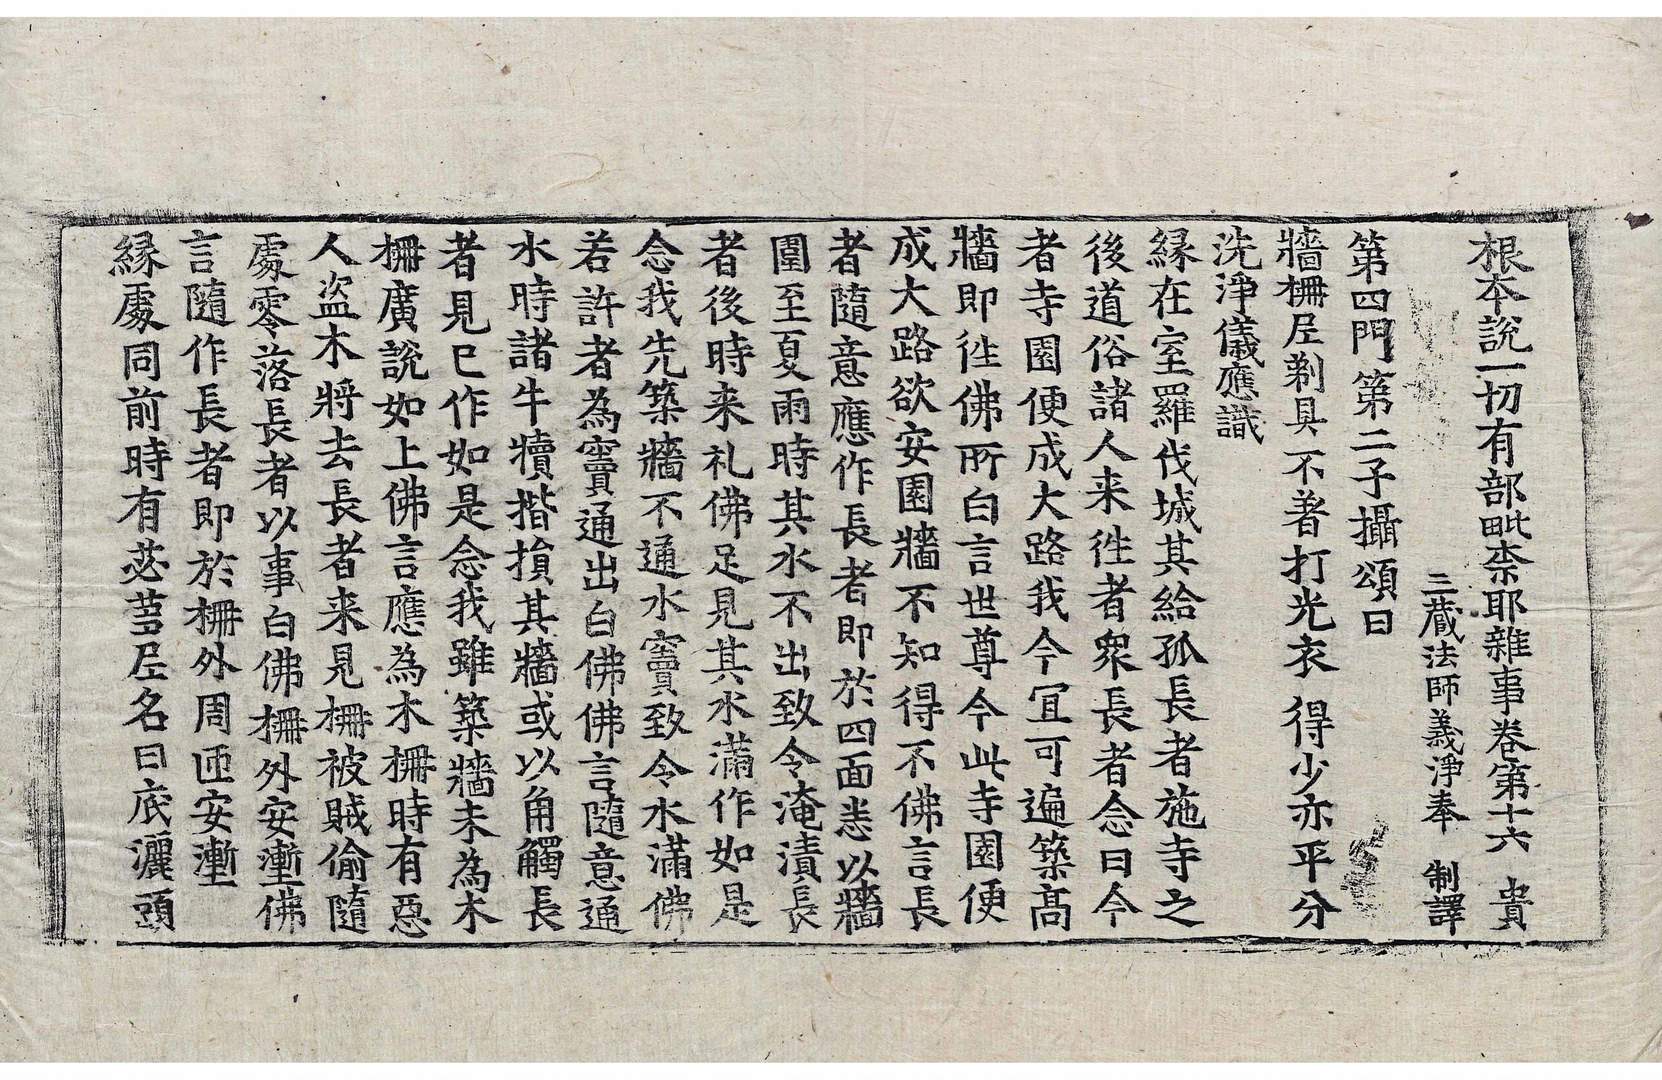 根本說一切有部毗柰耶雜事卷第十六　貴
三藏法師義淨奉　制譯
第四門第二子攝頌曰
牆柵𡰱剃具不著打光衣　得少亦平分
洗淨儀應識
緣在室羅伐城其給孤長者施寺之
後道俗諸人来徃者衆長者念曰今
者寺園便成大路我今冝可遍築髙
牆即徃佛所白言世尊今此寺園便
成大路欲安園牆不知得不佛言長
者隨意應作長者即於四面悉以牆
圍至夏雨時其水不出致令淹漬長
者後時来礼佛足見其水滿作如是
念我先築牆不通水竇致令水滿佛
若許者為竇通出白佛佛言隨意通
水時諸牛犢揩損其牆或以角觸長
者見已作如是念我雖築牆未為木
柵廣說如上佛言應為木柵時有惡
人盗木將去長者来見柵被賊偷隨
處零落長者以事白佛柵外安壍佛
言隨作長者即於柵外周匝安壍
緣處同前時有苾芻𡰱名曰底灑頭